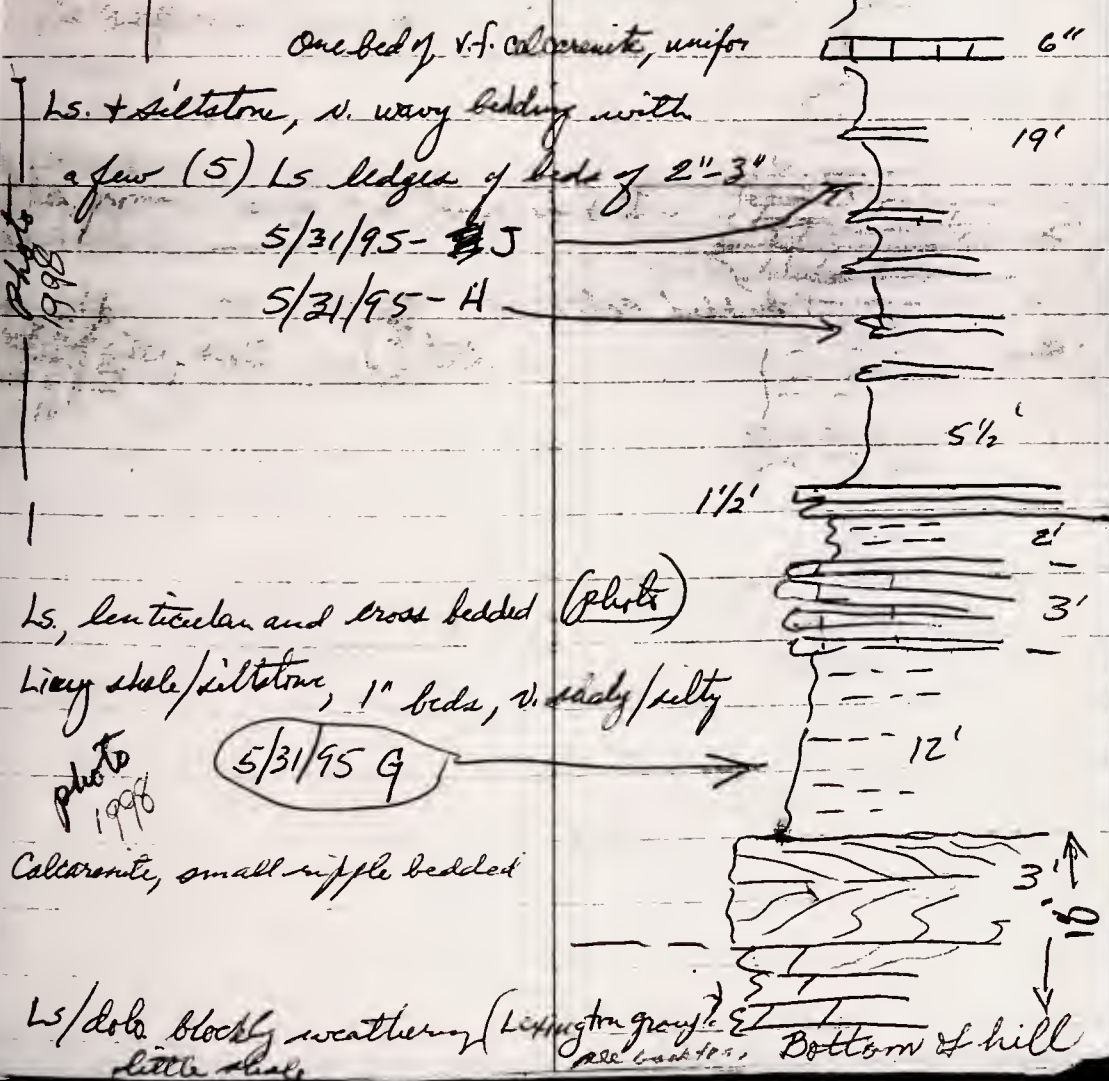 One bed of v.f. calcarenite, unifor
6"
Ls. + siltstone, v. wavy bedding with
19'
a few (5) Ls ledges of beds of 2"-3"
5/31/95- J
5/31/95- H
photo
1998
5 1/2'
1 1/2'
2'
Ls., lenticular and cross bedded (photo)
3'
Limy shale/siltstone, 1" beds, v. shaly/silty
5/31/95 G
12'
photo
1998
Calcarenite, small ripple bedded
3'
Ls/dolo blocky weathering (Lexington group?)
little shale
see
Bottom of hill